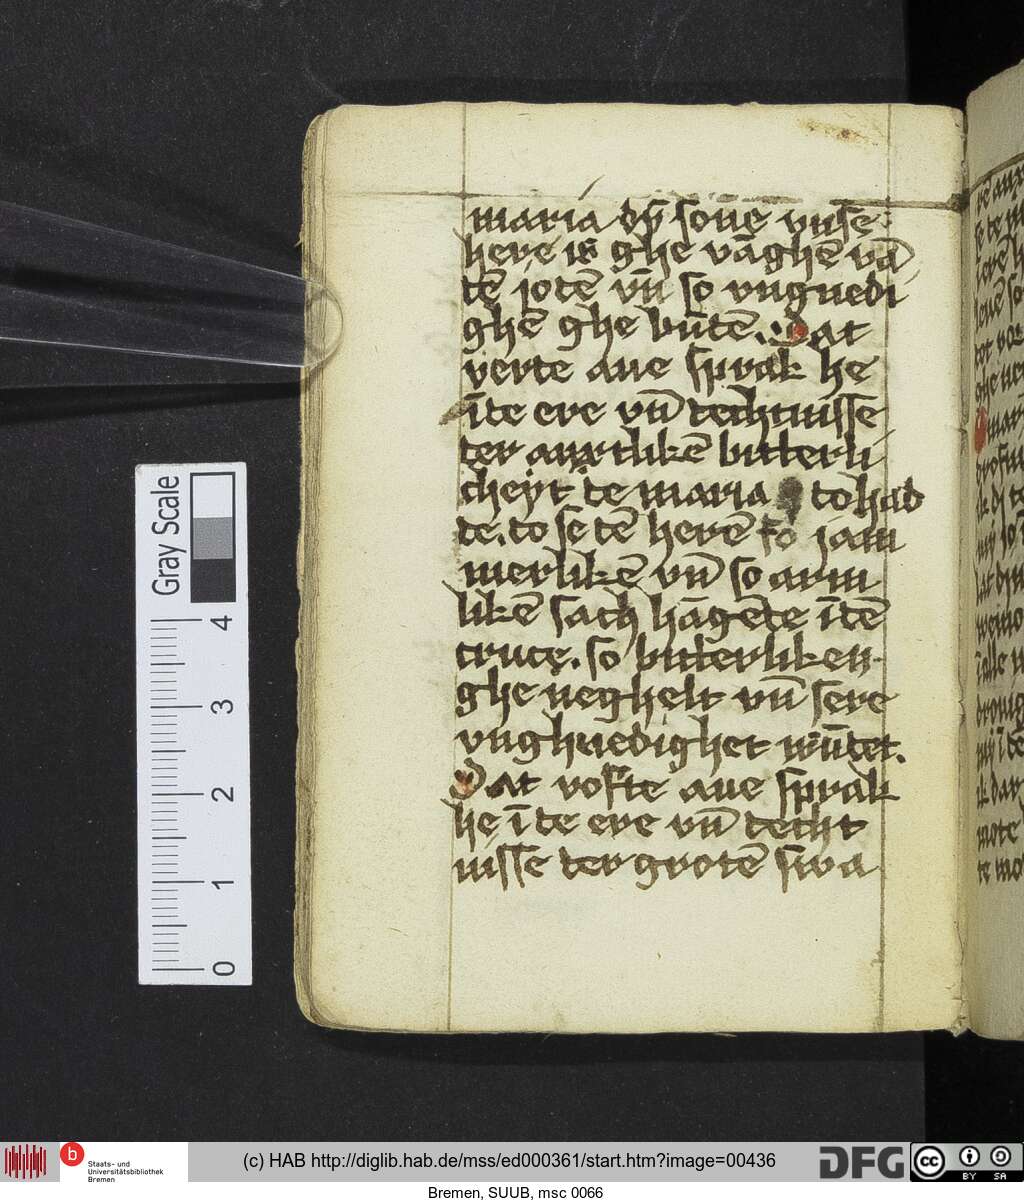 maria dy̅ sone vnse
here is ghe va̅ghe̅ va̅
te̅ iote̅ vn̅ so vngnedi
ghe̅ ghe bu̅te̅. Dat
verte aue sprak he
i̅ te ere vn̅ techtnisse
ter anxtlike̅ bitterli
cheyt te maria to had
te. to se te̅ here̅ so jam
merlike̅ vn̅ so arm
like̅ sach ha̅ge̅ te i̅ te̅
cruce. so bitterliken
ghe neghelt vn̅ sere
vnghnedighet wu̅det.
Dat vofte aue sprak
he i̅ te ere vn̅ techt
nisse ter grote̅ swa
Gray Scale
0 1 2 3 4
b Staats- und
Universitätsbibliothek
Bremen
(c) HAB http://diglib.hab.de/mss/ed000361/start.htm?image=00436
DFG
cc BY SA
Bremen, SUUB, msc 0066